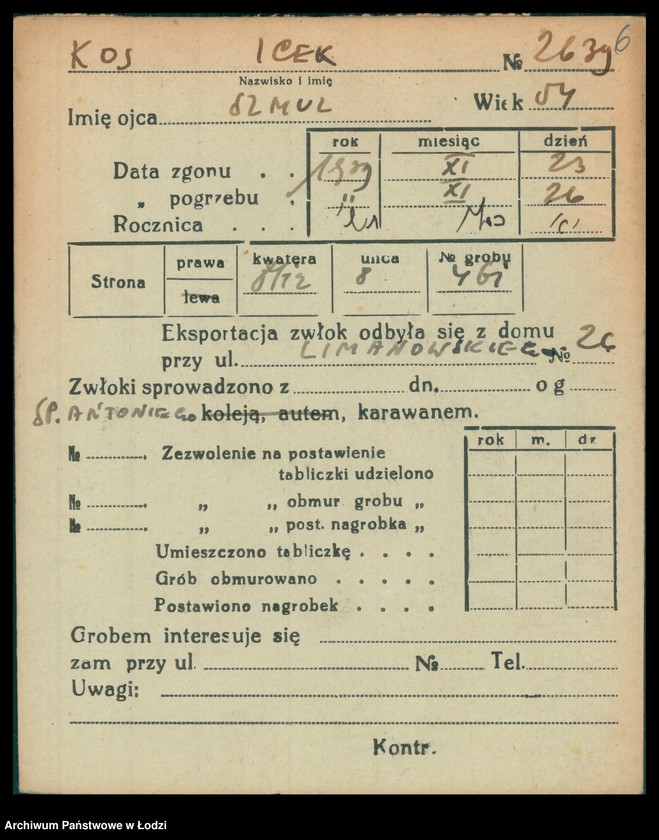 KOS ICEK № 26396
Nazwisko i imię
Imię ojca SZMUL Wiek 54
rok miesiąc dzień
Data zgonu . . 1939 XI 23
„ pogrzebu . „ XI 26
Rocznica . . .
Strona prawa lewa kwatera ulica 8 № grobu
Eksportacja zwłok odbyła się z domu
przy ul. LIMANOWSKIEGO № 26
Zwłoki sprowadzono z dn. o g
SP. ANTONIEGO koleją, autem, karawanem.
rok m. dz
№ Zezwolenie na postawienie
tabliczki udzielono
№ „ „ obmur grobu „
№ „ „ post. nagrobka „
Umieszczono tabliczkę . . . .
Grób obmurowano . . . . .
Postawiono nagrobek . . . .
Grobem interesuje się
zam przy ul. № Tel.
Uwagi:
Kontr.
Archiwum Państwowe w Łodzi